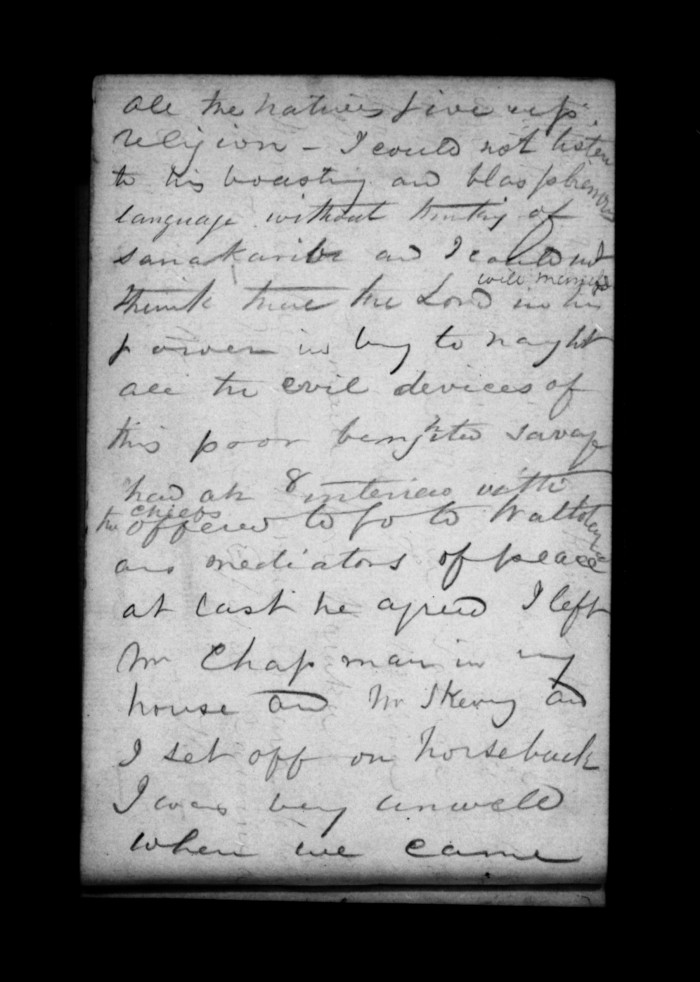 all the natives give up
religion - I could not listen
to his boasting and blasphemous
language without thinking of
sanakaribe and I could not
think that the Lord in his
will manifest
power in bring to naught
all the evil devices of
this poor benighted savage
had an interview with
the chiefs
offered to go to
as mediators of peace
at last he agreed I left
Mr Chapman in my
house and Mr Skevy and
I set off on horseback
I was very unwell
when we came